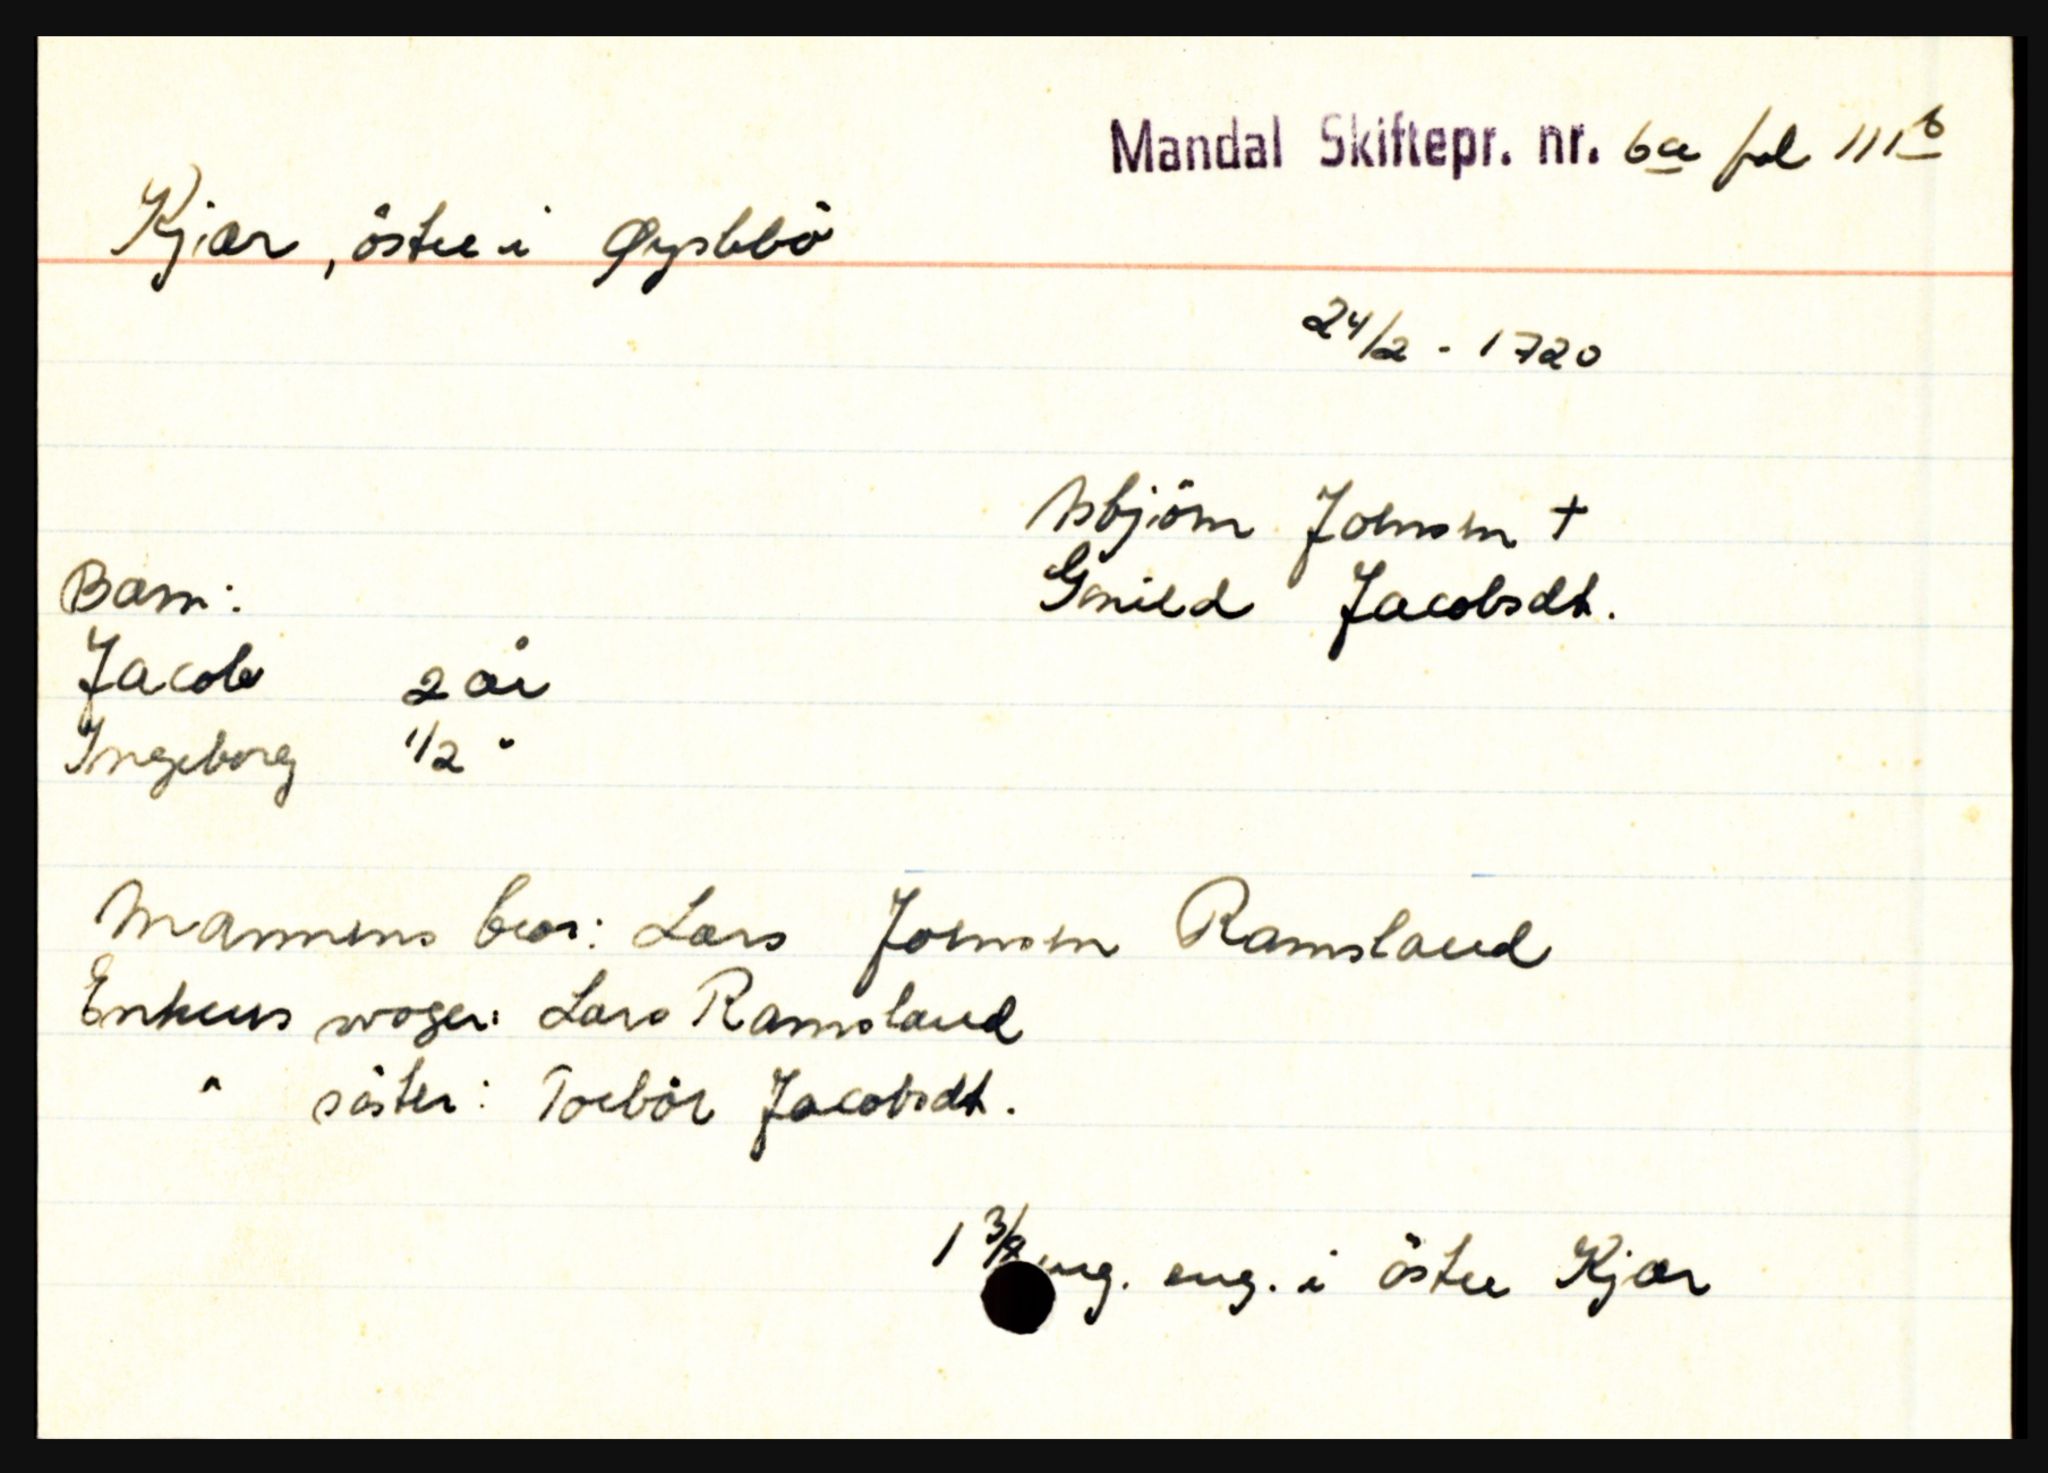 Mandal Skiftepr. nr. 6a fol 111b
Kjær, östre i Øyslebö
24/2 - 1720
Asbjörn Joensen †
Gunild Jacobsdt.
Barn:
Jacob 2 år
Ingeborg 1/2 "
Mannens bror: Lars Joensen Ramsland
Enkens svoger: Lars Ramsland
" söster: Torbör Jacobsdt.
1 3/8 eng. i östre Kjær